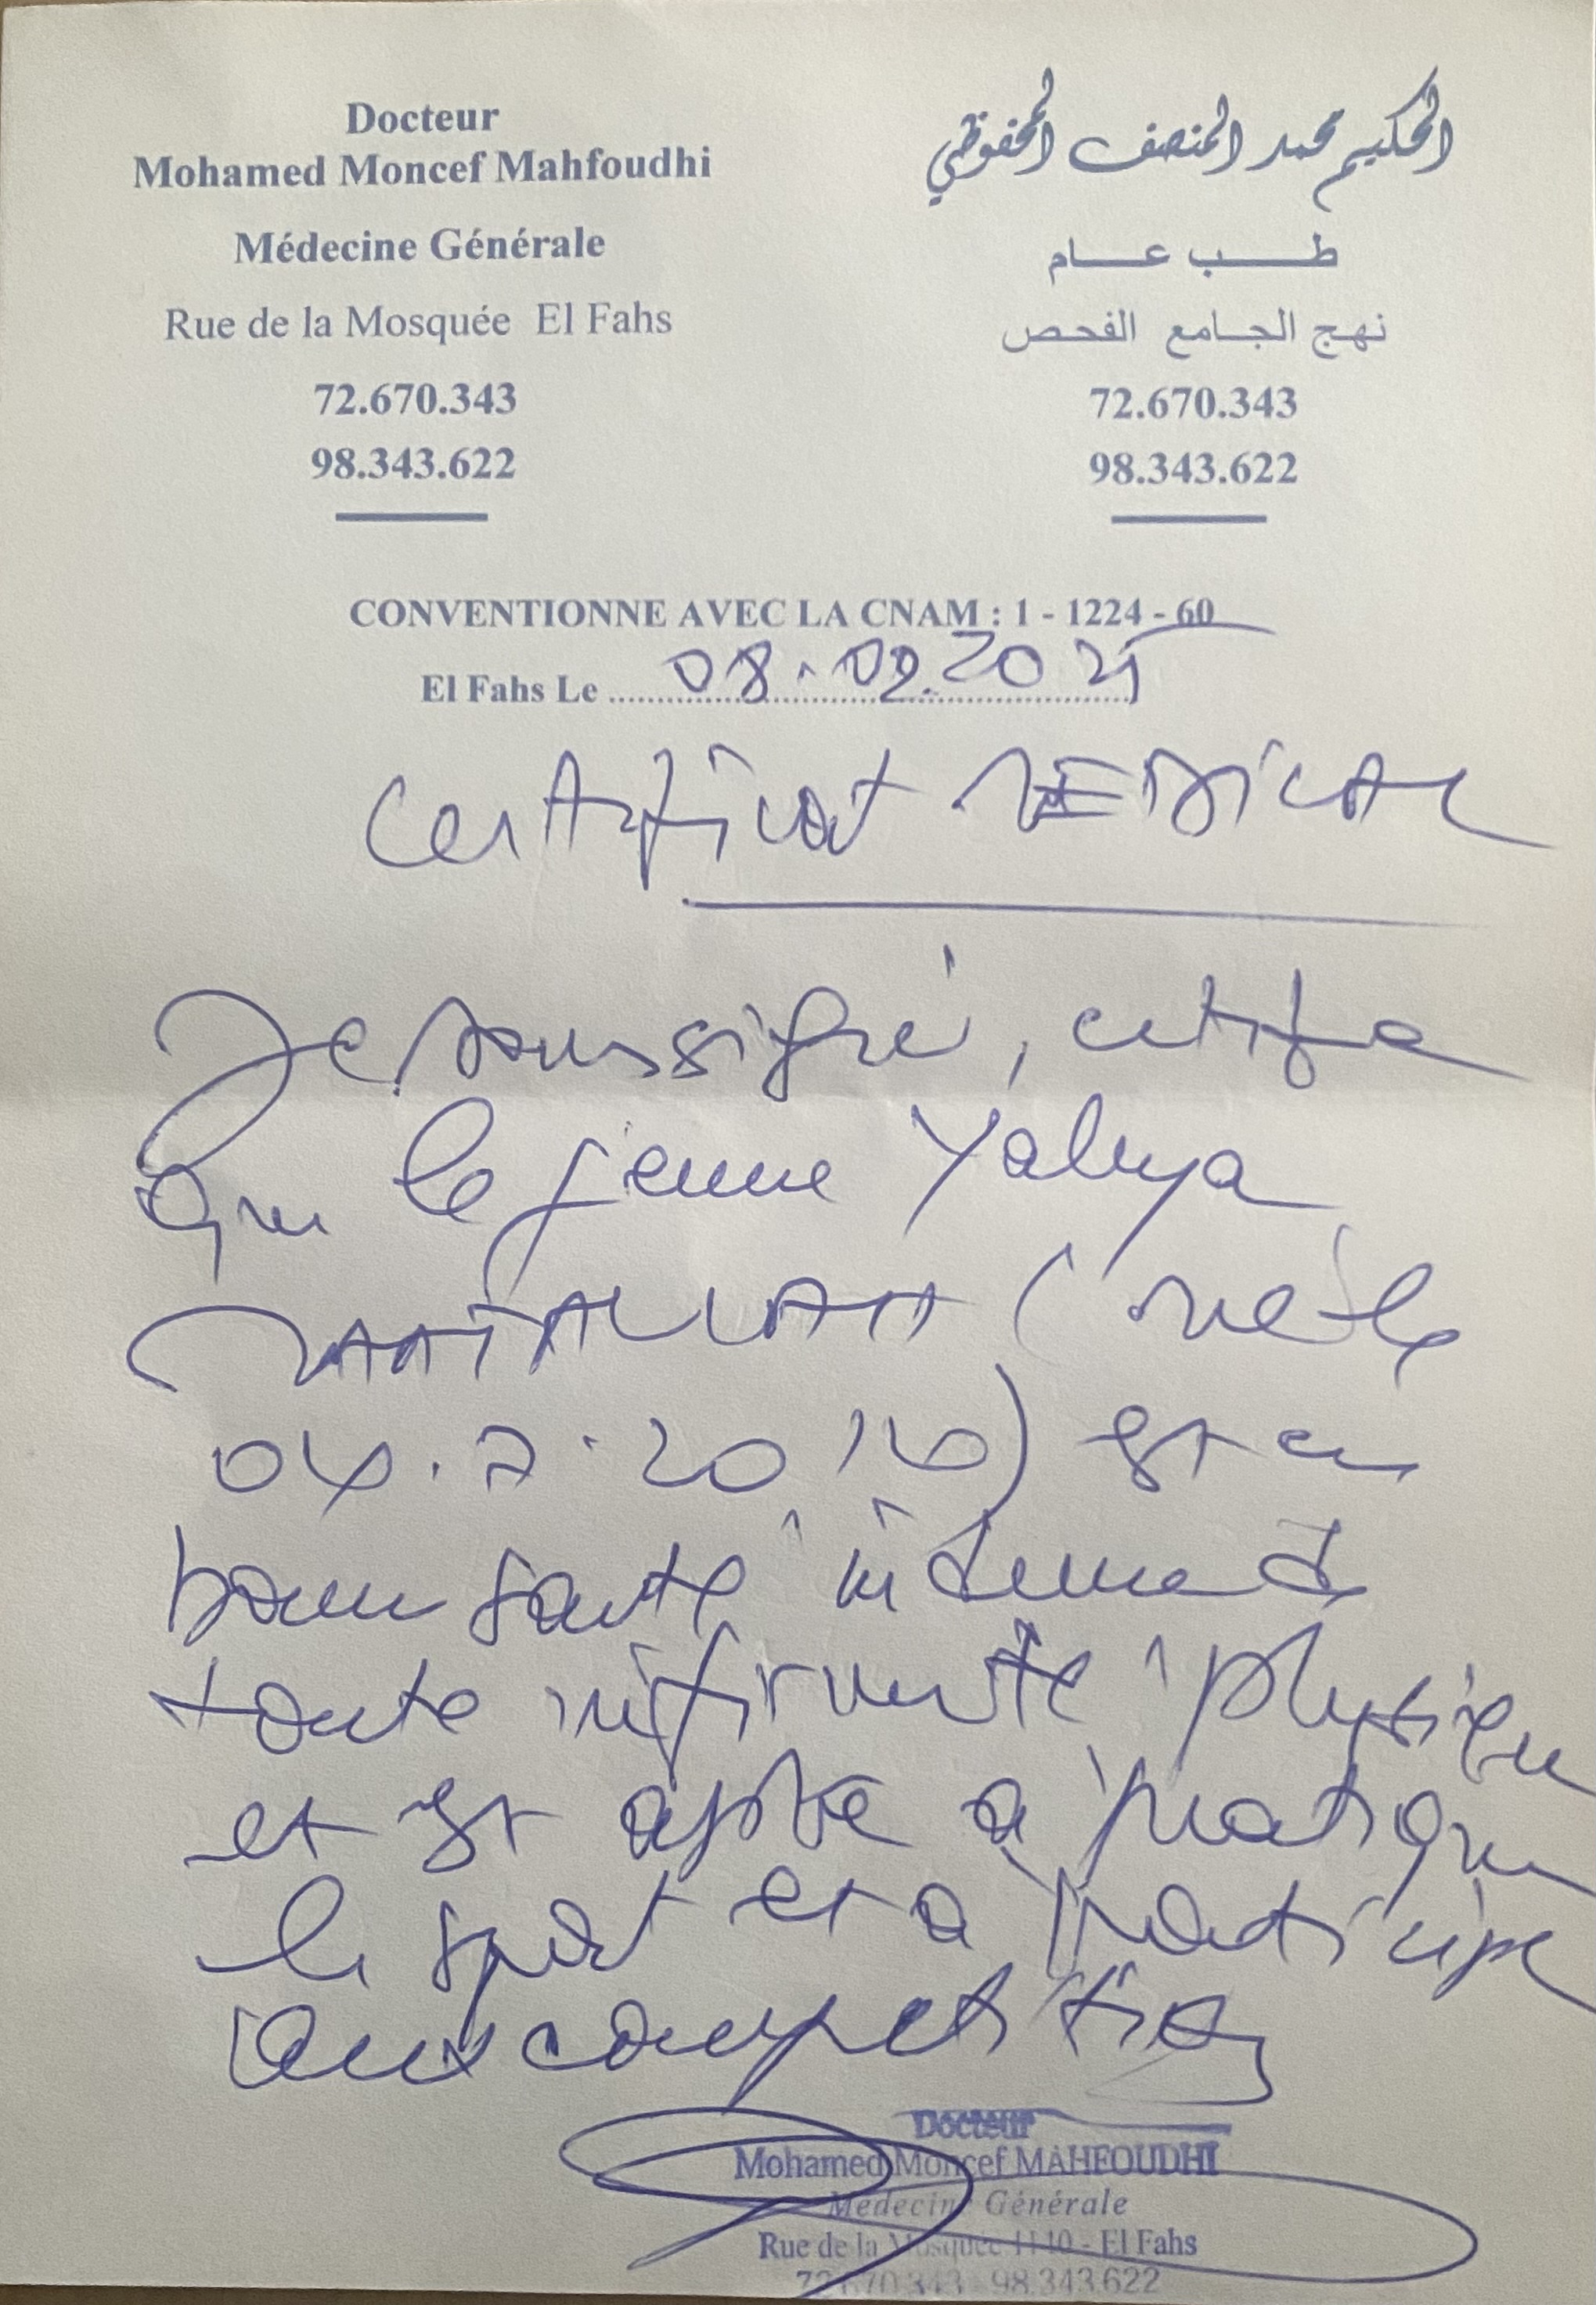 Docteur
Mohamed Moncef Mahfoudhi
Médecine Générale
Rue de la Mosquée El Fahs
72.670.343
98.343.622
الحكيم محمد المنصف المحفوظي
طب عام
نهج الجامع الفحص
72.670.343
98.343.622
CONVENTIONNE AVEC LA CNAM : 1 - 1224 - 60
El Fahs Le 08.09.2025
Certificat MEDICAL
Je soussigné, certifie
que le jeune Yahya
(né le
04.7.2016) est en
bonne santé indemne de
toute infirmité physique
et est apte à pratiquer
le sport et à participer
aux compétitions
Docteur
Mohamed Moncef MAHFOUDHI
Médecine Générale
Rue de la Mosquée 1140 - El Fahs
72.670.343 - 98.343.622